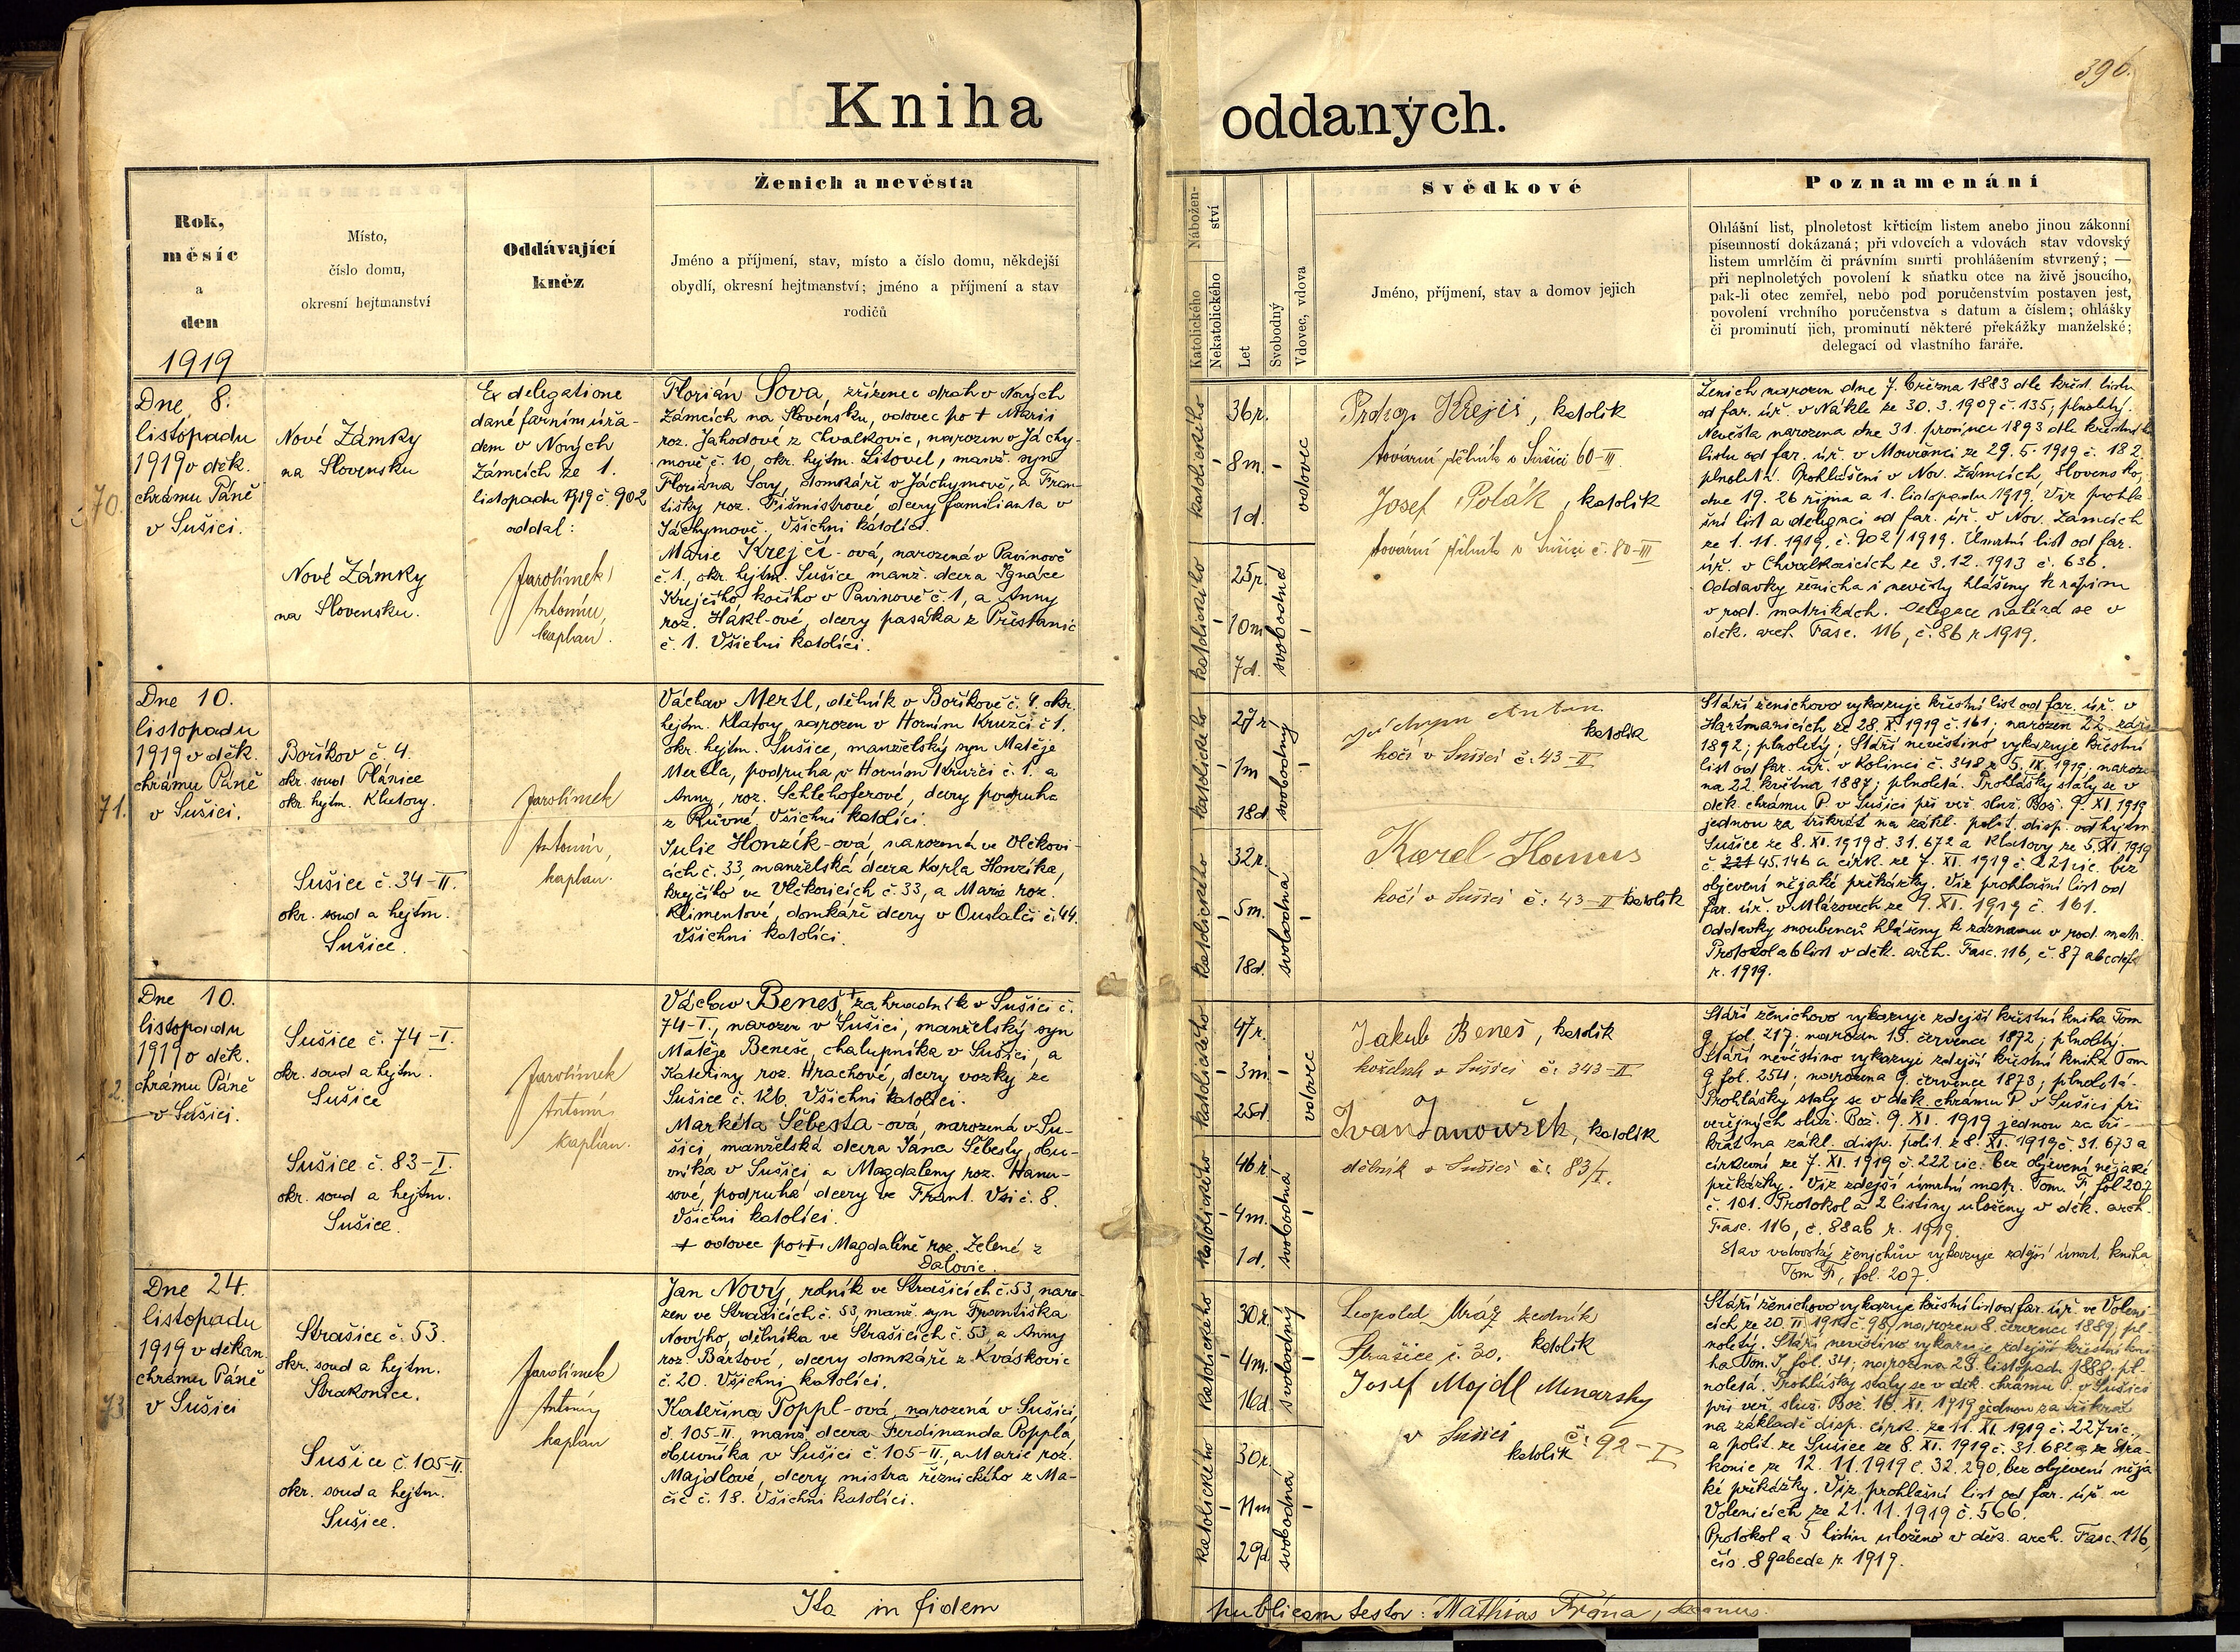 396.
Kniha oddaných.
Rok,
měsíc
a
den
1919
Místo,
číslo domu,
okresní hejtmanství
Oddávající
kněz
Ženich a nevěsta
Jméno a příjmení, stav, místo a číslo domu, někdejší
obydlí, okresní hejtmanství; jméno a příjmení a stav
rodičů
Nábožen-
ství
Katolického
Nekatolického
Let
Svobodný
Vdovec, vdova
Svědkové
Jméno, příjmení, stav a domov jejich
Poznamenání
Ohlášní list, plnoletost křticím listem anebo jinou zákonní
písemností dokázaná; při vdovcích a vdovách stav vdovský
listem umrlčím či právním smrti prohlášením stvrzený; —
při neplnoletých povolení k sňatku otce na živě jsoucího,
pak-li otec zemřel, nebo pod poručenstvím postaven jest,
povolení vrchního poručenstva s datum a číslem; ohlášky
či prominutí jich, prominutí některé překážky manželské;
delegací od vlastního faráře.
70.
Dne 8.
listopadu
1919 v děk.
chrámu Páně
v Sušici.
Nové Zámky
na Slovensku
Nové Zámky
na Slovensku.
Ex delegatione
dané farním úřa-
dem v Nových
Zámcích ze 1.
listopadu 1919 č. 902
oddal:
Jarolímek
Antonín,
kaplan.
Florián Sova, zřízenec drah v Nových
Zámcích na Slovensku, vdovec po + Marii
roz. Jahodové z Chvalkovic, narozen v Jáchy-
mově č. 10, okr. hejtm. Litovel, manž. syn
Floriána Sovy, domkáře v Jáchymově, a Fran-
tišky roz. Fišmistrové dcery familianta v
Jáchymově. Všichni katolíci.
Marie Krejčí-ová, narozená v Pavinově
č. 1., okr. hejtm. Sušice, manž. dcera Ignáce
Krejčího, kočího v Pavinově č. 1, a Anny
roz. Hákl-ové, dcery pasáka z Přestanic
č. 1. Všichni katolíci.
katolického
36 r.
8 m.
1 d.
vdovec
katolického
25 r.
10 m.
7 d.
svobodná
Prokop Krejčí, katolík
tovární dělník v Sušici 60-III
Josef Polák, katolík
tovární dělník v Sušici č. 80-III
Ženich narozen dne 7. března 1883 dle křest. listu
od far. úř. v Nákle ze 30. 3. 1909 č. 135; plnoletý.
Nevěsta narozena dne 31. prosince 1893 dle křestního
listu od far. úř. v Mouřenci ze 29. 5. 1919 č. 182.
plnoletá. Prohlášeni v Nov. Zámcích, Slovensko,
dne 19. 26 října a 1. listopadu 1919. Viz prohla-
šní list a delegaci od far. úř. v Nov. Zámcích
ze 1. 11. 1919, č. 902/1919. Úmrtní list od far.
úř. v Chvalkovicích ze 3. 12. 1913 č. 636.
Oddavky ženicha i nevěsty hlášeny k zápisu
v rod. matrikách. Delegace nalézá se v
děk. arch. Fasc. 116, č. 86 r. 1919.
71.
Dne 10.
listopadu
1919 v děk.
chrámu Páně
v Sušici.
Boříkov č. 4.
okr. soud Plánice
okr. hejtm. Klatovy.
Sušice č. 34-II.
okr. soud a hejtm.
Sušice.
Jarolímek
Antonín,
kaplan.
Václav Mertl, dělník v Boříkově č. 4. okr.
hejtm. Klatovy, narozen v Horním Kružci č. 1.
okr. hejtm. Sušice, manželský syn Matěje
Mertla, podruha v Horním Kružci č. 1. a
Anny, roz. Schlehoferové, dcery podruha
z Rovné. Všichni katolíci.
Julie Honzík-ová, narozená ve Vlčkovi-
cích č. 33, manželská dcera Karla Honzíka,
krejčího ve Vlčkovicích č. 33, a Marie roz.
Klimentové, domkáře dcery v Ouslalči č. 44.
Všichni katolíci.
katolického
27 r.
1 m
18 d.
svobodný
katolického
32 r.
5 m.
18 d.
svobodná
Jáchym Anton
katolík
kočí v Sušici č. 43-II
Karel Hanus
kočí v Sušici č. 43-II katolík
Stáří ženichovo vykazuje křestní list od far. úř. v
Hartmanicích ze 28. X. 1919 č. 161; narozen 22. září
1892; plnoletý; Stáří nevěstino vykazuje křestní
list od far. úř. v Kolinci č. 348 z 5. IX. 1919. naroze-
na 22. května 1887; plnoletá. Prohlášky staly se v
děk. chrámu P. v Sušici při veř. služ. Bož. 9. XI. 1919
jednou za třikrát na zákl. polit. disp. od hejtm.
Sušice ze 8. XI. 1919 č. 31.672 a Klatovy ze 5. XI. 1919
č. 221 45.146 a círk. ze 7. XI. 1919 č. 221 vic. bez
objevení nějaké překážky. Viz prohlašní list od
far. úř. v Mlázovech ze 9. XI. 1919 č. 161.
Oddavky snoubenců hlášeny k záznamu v rod. matr.
Protokol a 6 list v děk. arch. Fasc. 116, č. 87 abcdef
r. 1919.
72.
Dne 10.
listopadu
1919 v děk.
chrámu Páně
v Sušici.
Sušice č. 74-I.
okr. soud a hejtm.
Sušice
Sušice č. 83-I.
okr. soud a hejtm.
Sušice.
Jarolímek
Antonín
kaplan.
Václav Beneš, + zahradník v Sušici č.
74-I., narozen v Sušici, manželský syn
Matěje Beneše, chalupníka v Sušici, a
Kateřiny roz. Hrachové, dcery vozky ze
Sušice č. 126. Všichni katolíci.
Markéta Šebesta-ová, narozená v Su-
šici, manželská dcera Jana Šebesty, obu-
vníka v Sušici, a Magdaleny roz. Hanu-
sové, podruha dcery ve Frant. Vsi č. 8.
Všichni katolíci.
+ vdovec po + Magdaléně roz. Zelené, z
Dalovic.
katolického
47 r.
3 m.
25 d
vdovec
katolického
46 r.
4 m.
1 d.
svobodná
Jakub Beneš, katolík
koželuh v Sušici č. 343-II
Ivan Janoušek, katolík
dělník v Sušici č. 83/I.
Stáří ženichovo vykazuje zdejší křestní kniha Tom
9, fol. 217; narozen 15. července 1872; plnoletý.
Stáří nevěstino vykazuje zdejší křestní kniha Tom
9 fol. 254; narozena 9. července 1873; plnoletá.
Prohlášky staly se v děk. chrámu P. v Sušici při
veřejných služ. Bož. 9. XI. 1919 jednou za tři-
krát na zákl. disp. polit. z 8. XI. 1919 č. 31.673 a
církevní ze 7. XI. 1919 č. 222 vic. bez objevení nějaké
překážky. Viz zdejší úmrtní matr. Tom. F, fol 207
č. 101. Protokol a 2 listiny uloženy v děk. arch.
Fasc. 116, č. 88 ab r. 1919.
Stav vdovský ženichův vykazuje zdejší úmrt. kniha
Tom F, fol. 207.
73.
Dne 24.
listopadu
1919 v děkan.
chrámu Páně
v Sušici
Strašice č. 53.
okr. soud a hejtm.
Strakonice.
Sušice č. 105-II.
okr. soud a hejtm.
Sušice.
Jarolímek
Antonín
kaplan
Jan Nový, rolník ve Strašicích č. 53, naro-
zen ve Strašicích č. 53, manž. syn Františka
Nového, dělníka ve Strašicích č. 53, a Anny
roz. Bártové, dcery domkáře z Kváskovic
č. 20. Všichni katolíci.
Kateřina Poppl-ová, narozená v Sušici,
č. 105-II., manž. dcera Ferdinanda Poppla,
obuvníka v Sušici č. 105-II., a Marie roz.
Majdlové, dcery mistra řeznického z Ma-
čic č. 18. Všichni katolíci.
katolického
30 r.
4 m.
16 d.
svobodný
katolického
30 r.
11 m
29 d.
svobodná
Leopold Mráz zedník
Strašice č. 30. katolík
Josef Majdl Menarsky
v Sušici č. 92-I
katolík
Stáří ženichovo vykazuje křestní list od far. úř. ve Voleni-
cích ze 20. II. 1919 č. 98; narozen 8. července 1889; pl-
noletý. Stáří nevěstino vykazuje zdejší křestní kni-
ha Tom. , fol. 34; narozena 25. listopadu 1888. pl-
noletá. Prohlášky staly se v děk. chrámu P. v Sušici
při veř. služ. Bož. 16. XI. 1919 jednou za třikrát
na základě disp. círk. ze 11. XI. 1919 č. 227 vic.,
a polit. ze Sušice ze 8. XI. 1919 č. 31.682 a ze Stra-
konic ze 12. 11. 1919 č. 32.290, bez objevení něja-
ké překážky. Viz prohlašní list od far. úř. ve
Volenicích ze 21. 11. 1919 č. 566.
Protokol a 5 listin uloženo v děk. arch. Fasc. 116,
čís. 89 abcde r. 1919.
Ita in fidem publicam testor: Mathias Frána, decanus.